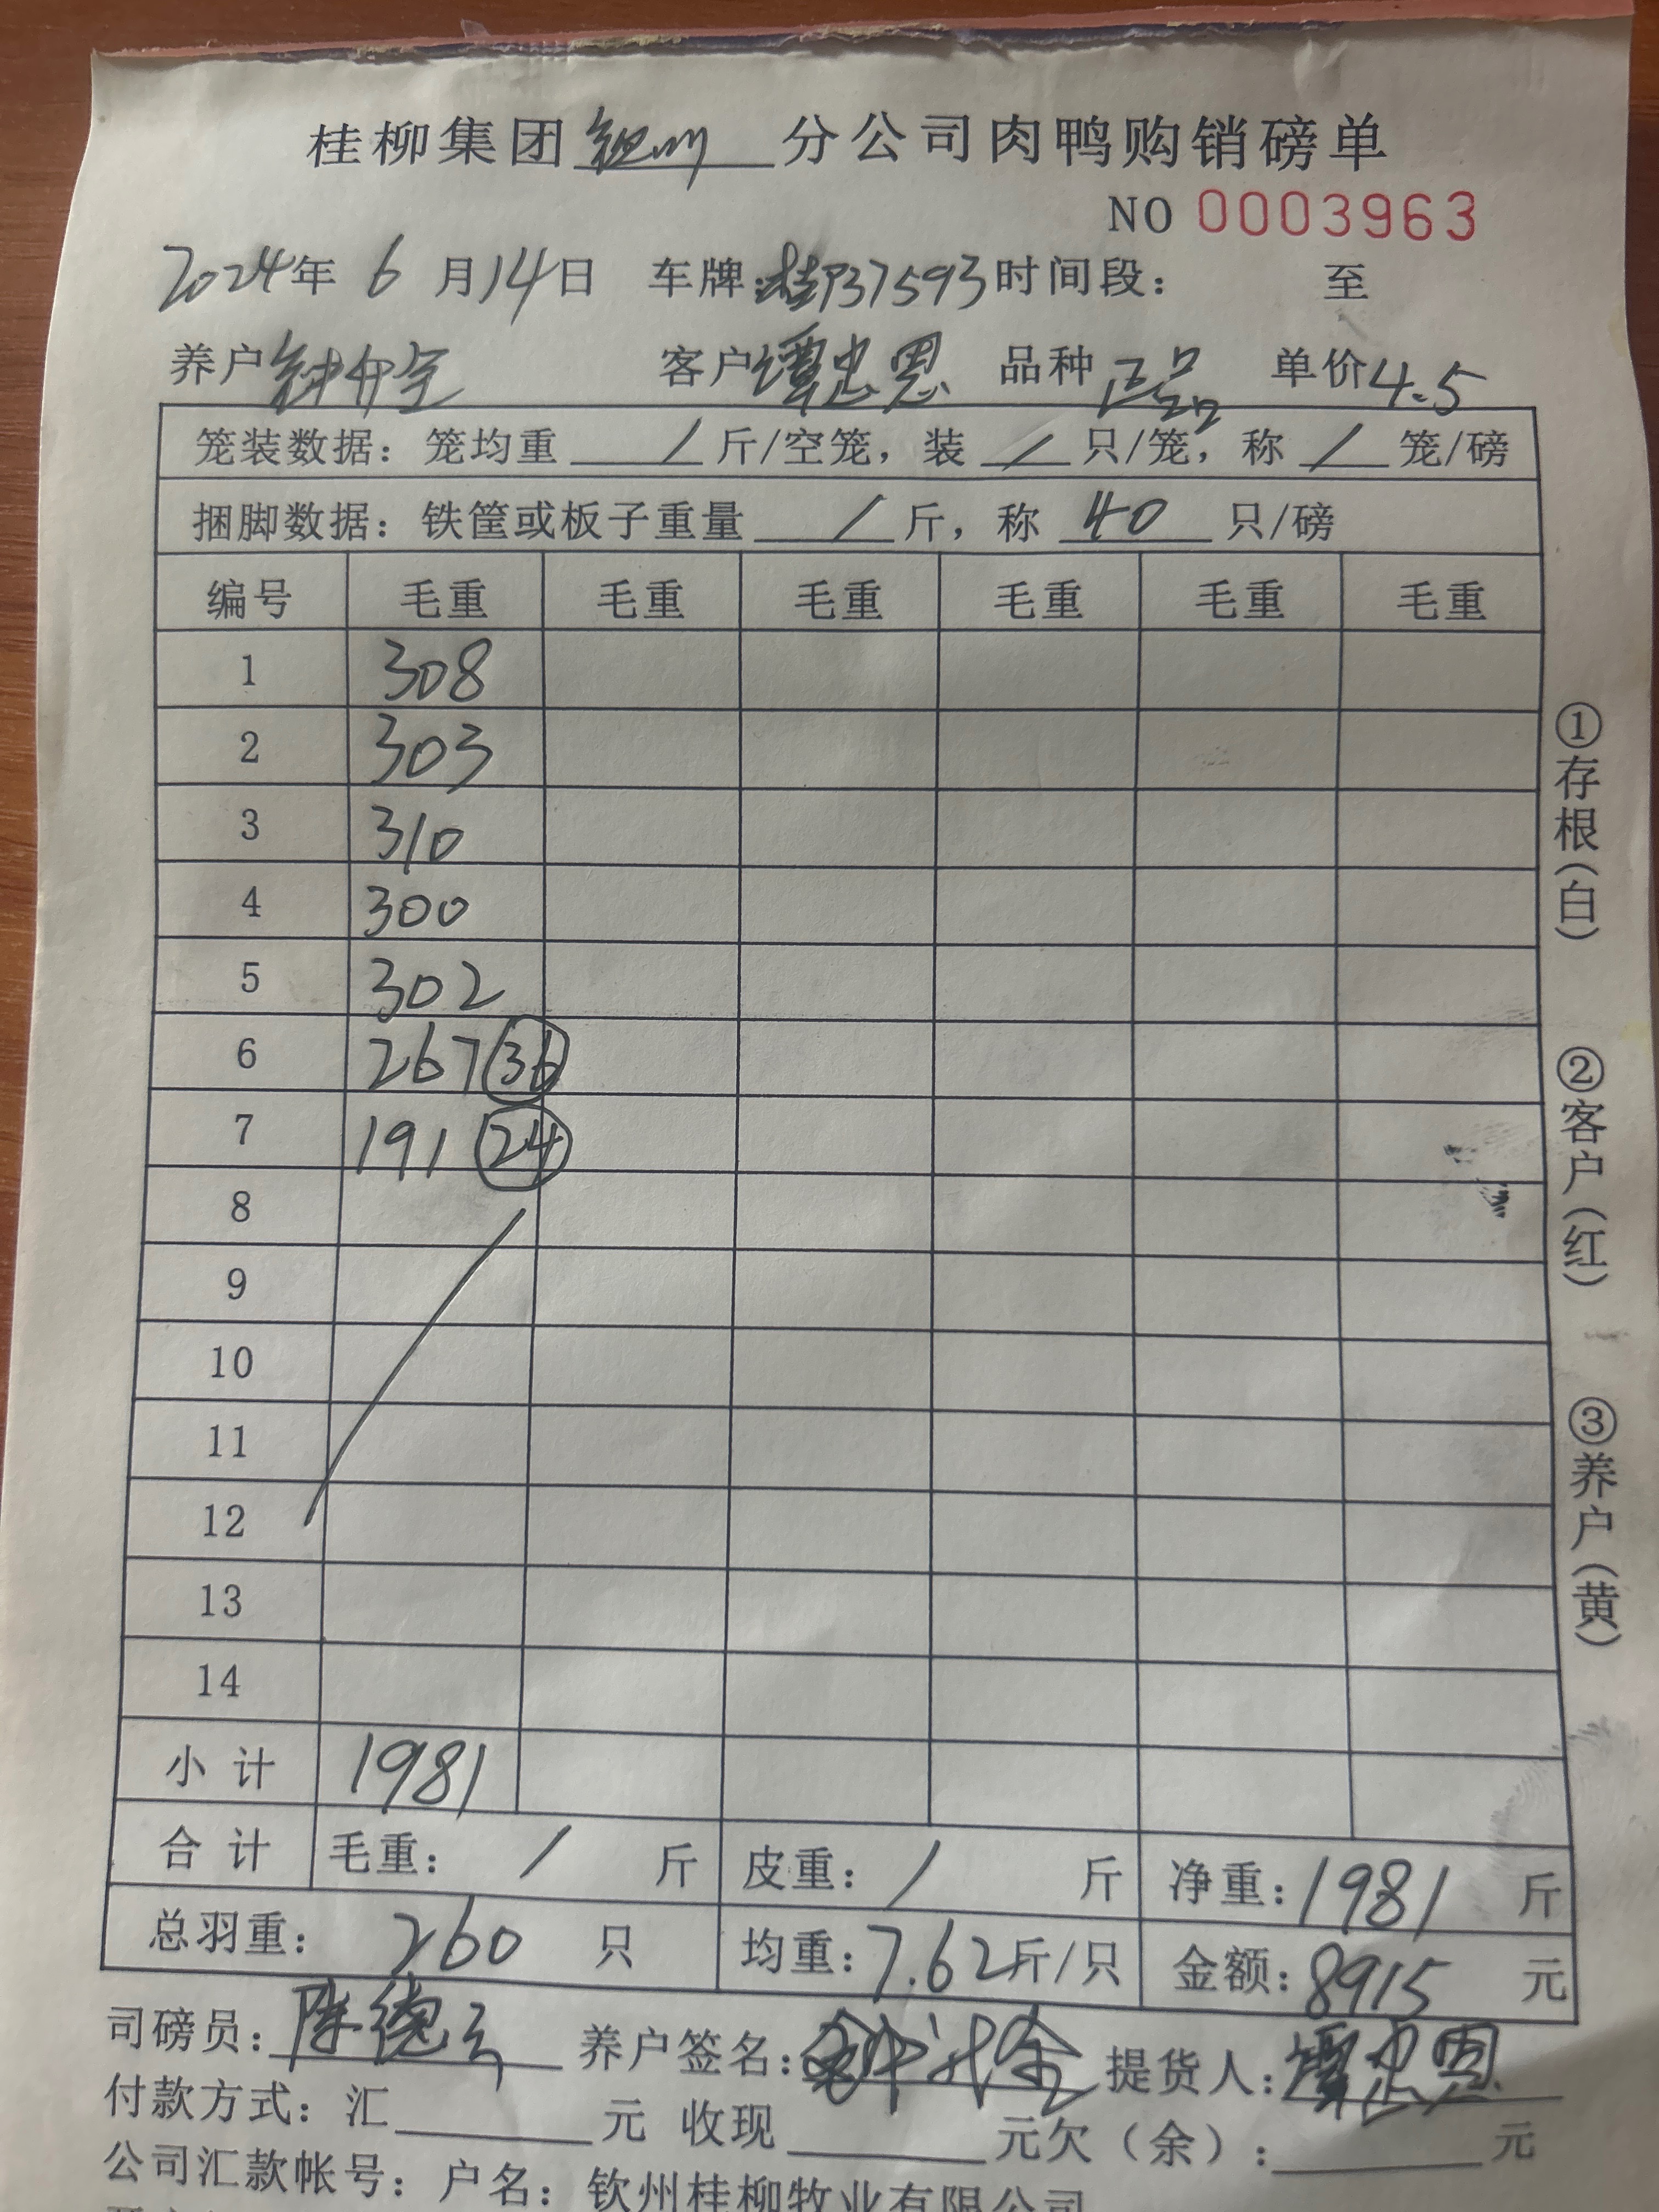 桂柳集团钦州分公司肉鸭购销磅单
NO 0003963
2024年 6 月14日 车牌:桂P37593时间段: 至
养户 客户谭忠恩 品种 正品 单价4.5
笼装数据: 笼均重 / 斤/空笼, 装 / 只/笼, 称 / 笼/磅
捆脚数据: 铁筐或板子重量 / 斤, 称 40 只/磅
编号 毛重 毛重 毛重 毛重 毛重 毛重
1 308
2 303
3 310
4 300
5 302
6 267 36
7 191 24
8
9
10
11
12
13
14
小计 1981
合计 毛重: / 斤 皮重: / 斤 净重: 1981 斤
总羽重: 260 只 均重: 7.62斤/只 金额: 8915 元
司磅员: 陈德云 养户签名: 提货人: 谭忠恩
付款方式: 汇 元 收现 元欠(余): 元
公司汇款帐号: 户名: 钦州桂柳牧业有限公司
①存根(白) ②客户(红) ③养户(黄)